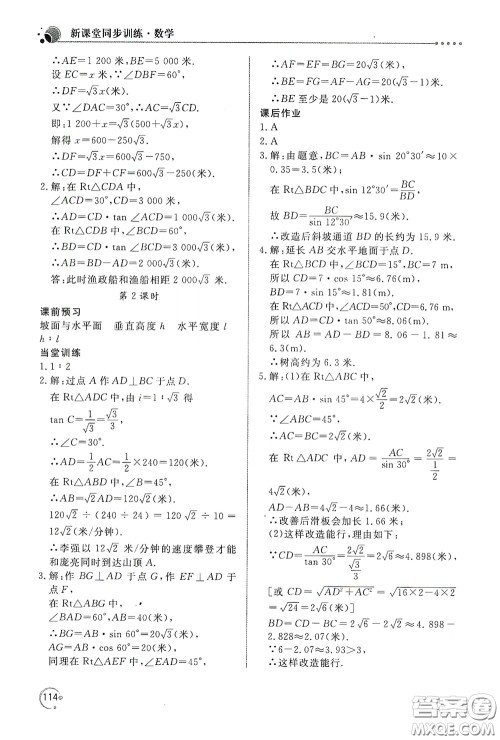 新课堂同步训练·数学
∴AE=1 200 米,BE=5 000 米.
设 EC=x 米,∵∠DBF=60°,
∴DF=√3x(米).
又∵∠DAC=30°,∴AC=√3CD.
即:1 200+x=√3(600+√3x),
解得 x=600-250√3.
∴DF=√3x=600√3-750.
∴CD=CF+DF=600√3-150(米).
2.解:在 Rt△CDA 中,
∠ACD=30°,CD=3 000 米,
∴AD=CD·tan∠ACD=1 000√3(米).
在 Rt△CDB 中,∠BCD=60°,
∴BD=CD·tan∠BCD=3 000√3(米).
∴AB=BD-AD=2 000√3(米).
答:此时渔政船和渔船相距 2 000√3米.
第 2 课时
课前预习
坡面与水平面 垂直高度 h 水平宽度 l
h∶l
当堂训练
1.1∶2
2.解:过点 A 作 AD⊥BC 于点 D.
在 Rt△ADC 中,由 i=1∶√3得
tan C=1/√3=√3/3.
∴∠C=30°.
∴AD=1/2AC=1/2×240=120(米).
在 Rt△ABD 中,∠B=45°,
∴AB=√2AD=120√2(米).
120√2÷(240÷24)=120√2÷10=
12√2(米/分钟).
∴李强以 12√2 米/分钟的速度攀登才能
和庞亮同时到达山顶 A.
3.解:作 BG⊥AD 于点 G,作 EF⊥AD 于
点 F,
在 Rt△ABG 中,
∵∠BAD=60°,AB=40 米,
∴BG=AB·sin 60°=20√3(米),
AG=AB·cos 60°=20(米).
同理在 Rt△AEF 中,∠EAD=45°,
∴AF=EF=BG=20√3(米).
∴BE=FG=AF-AG=20(√3-1)(米).
∴BE 至少是 20(√3-1)米.
课后作业
1.A
2.A
3.解:由题意,BC=AB·sin 20°30′≈10×
0.35=3.5(米);
在 Rt△BDC 中,sin 12°30′=BC/BD,
故 BD=BC/sin 12°30′≈15.9(米).
∴改造后斜坡通道 BD 的长约为 15.9 米.
4.解:延长 AB 交水平地面于点 C,
在 Rt△BDC 中,∠BDC=15°,BC=7 m,
所以 CD=7·cos 15°≈6.76(m),
BD=7·sin 15°≈1.82(m).
在 Rt△ADC 中,∠ADC=50°,CD=6.76 m,
所以 AD=8.06(m),
AB=AD-BD=8.06-1.82=6.24≈
6.3(m).
∴树高约为 6.3 米.
5.解:(1)在 Rt△ABC 中,
AC=AB·sin 45°=4×√2/2=2√2(米),
∵∠ABC=45°,
∴AC=BC=2√2(米).
在 Rt△ADC 中,AD=AC/sin 30°=2√2/(1/2)=
4√2(米),
∴AD-AB=4√2-4≈1.66(米).
∴改善后滑板会加长 1.66 米;
(2)这样改造能行,理由如下:
∵CD=AC/tan 30°=2√2/(√3/3)=2√6≈4.898(米),
[或 CD=√(AD²+AC²)=√(16×2-4×2)
=√24=2√6(米)]
∴BD=CD-BC=2√6-2√2≈4.898-
2.828≈2.07(米).
∵6-2.07≈3.93>3,
∴这样改造能行.
114
答案圈
MXQE.COM